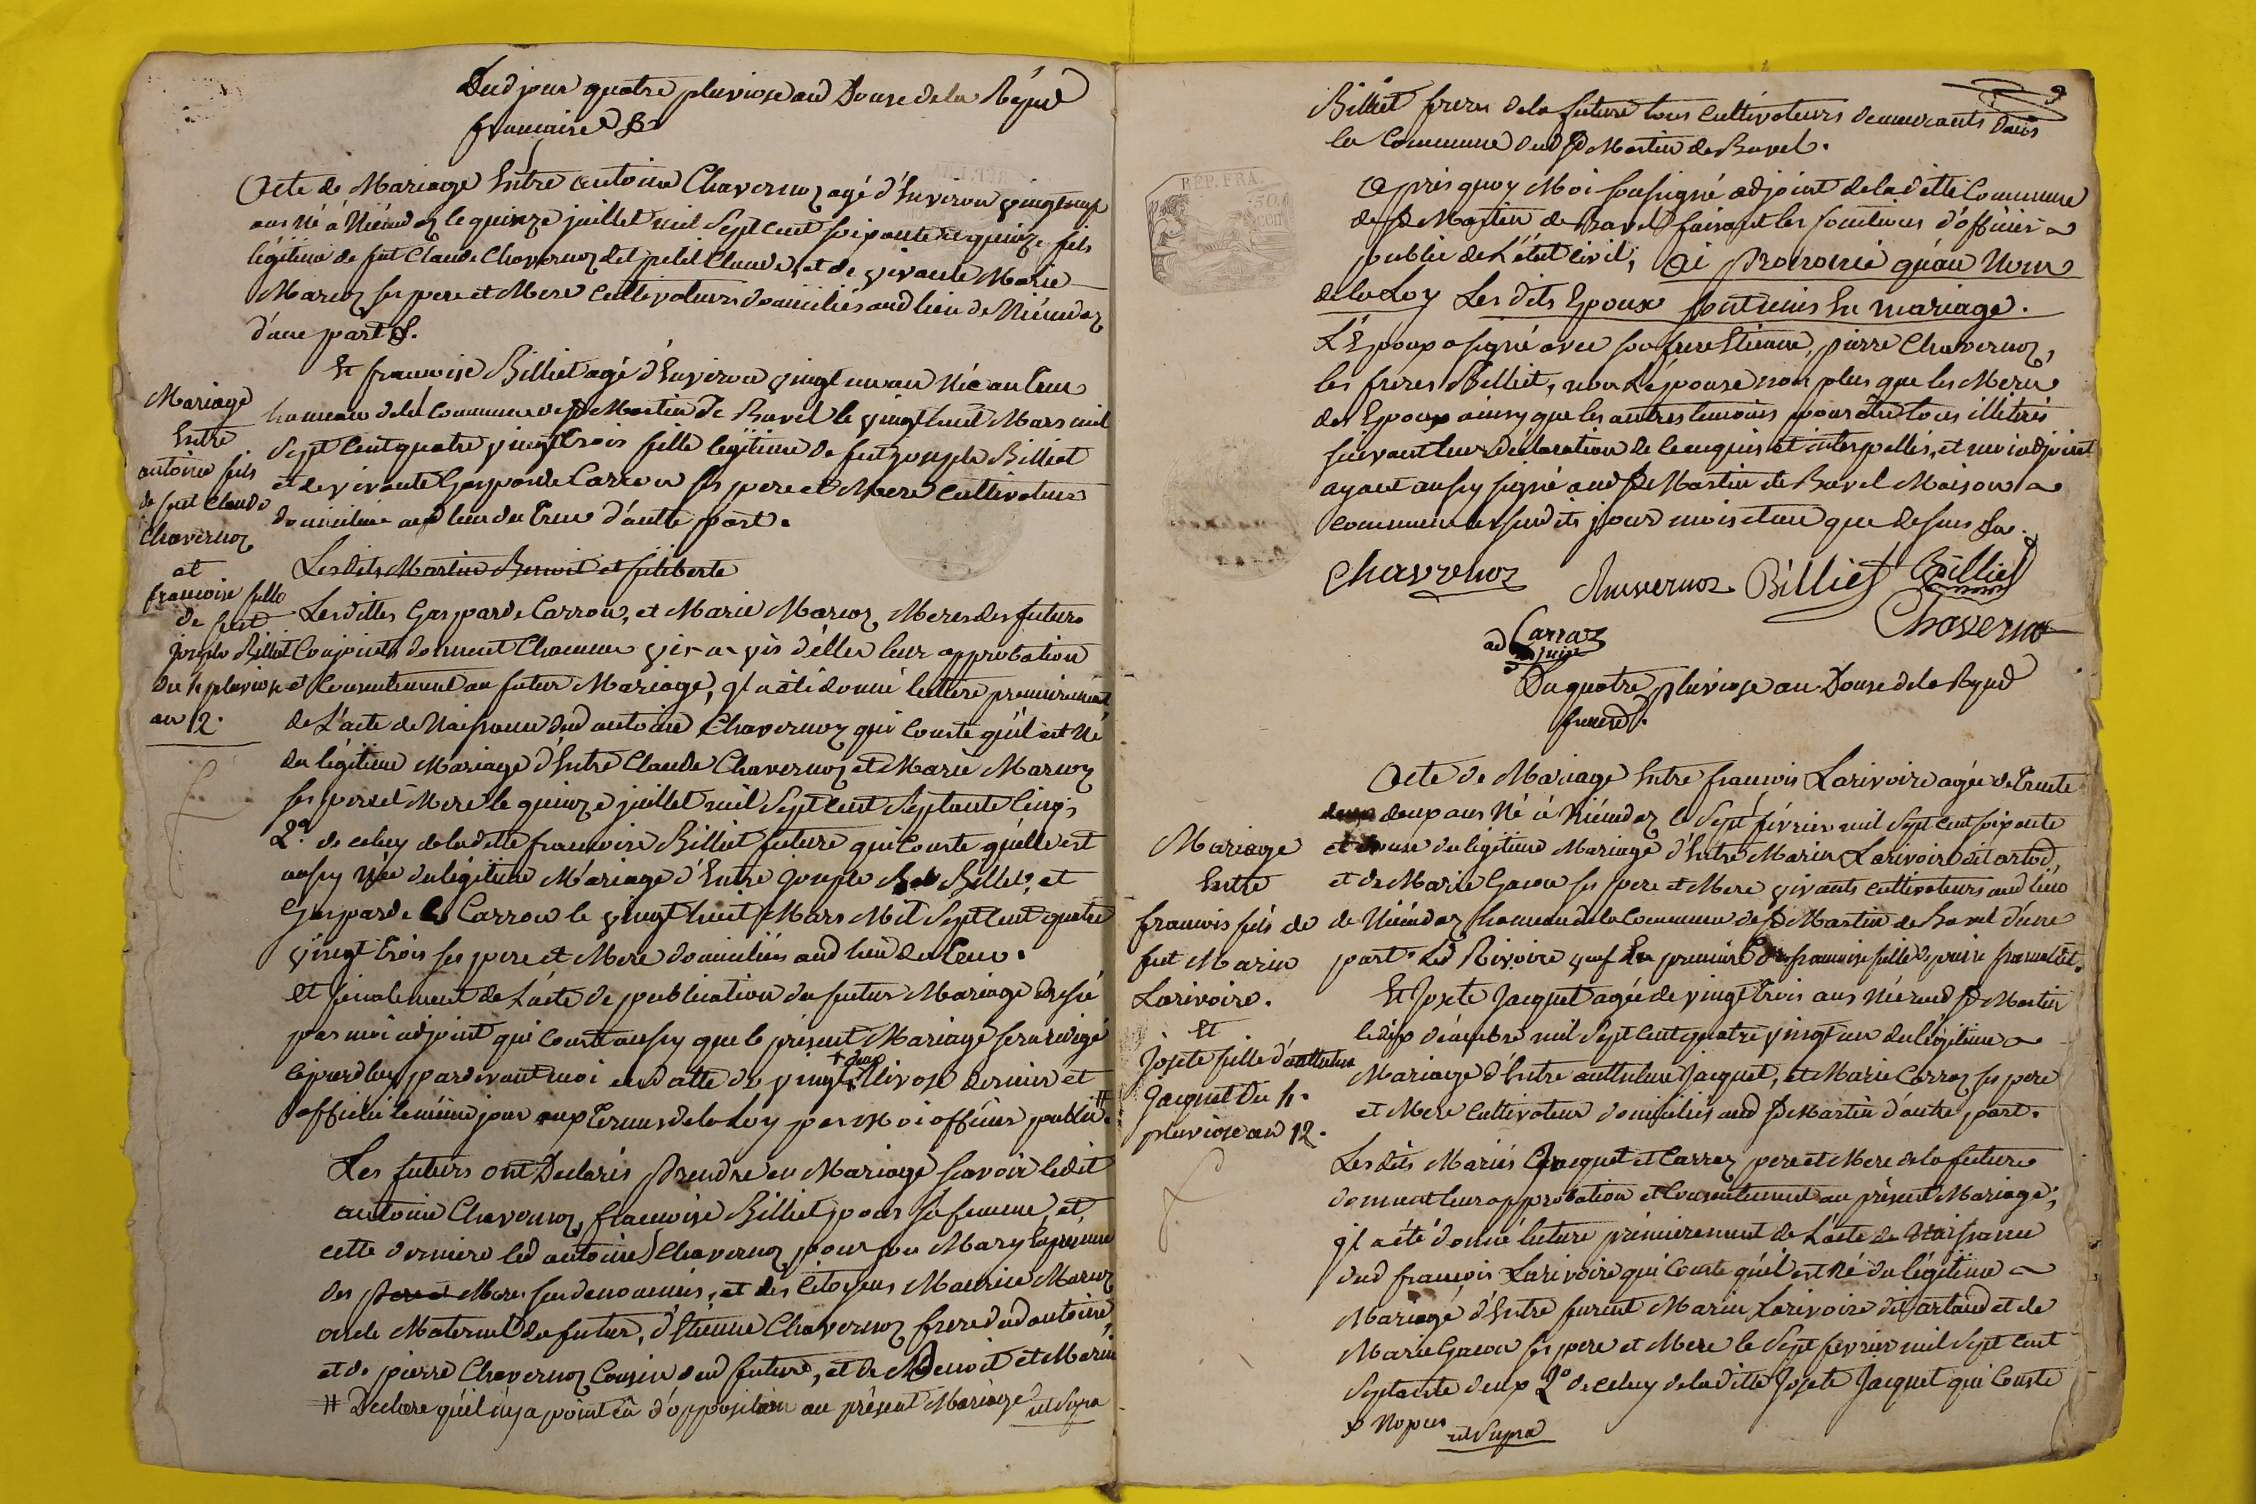 Dud jour quatre pluviose an Douse de la Répud
francaise
Acte de Mariage Entre antoine Chavernoz agé d'Environ vingt neuf
ans Né à Niéudaz le quinze juillet mil Sept cent soixante et quinze fils
légitime de fut Claude Chavernoz dit petit Claude, et de vivante Marie
Marcoz ses pere et Mere Cultivateurs domiciliés aud lieu de Niéudaz
d'une part
Et francoise Billiet agé d'Environ vingt un an Née au Treu
hameau de la Commune de St Martin de Bavel le vingt huit Mars mil
Sept Cent quatre vingt trois fille légitime de fut joseph Billiet
et de vivante Gasparde Carron ses pere et Mere Cultivateurs
domiciliers aud lieu du Treu d'autre part.
Mariage
Entre
antoine fils
de feut Claude
Chavernoz
et
francoise fille
de feut
joseph Billiet
du 4 pluviose
an 12.
Lesdits Martin Benoit et filiberte
Lesdittes Gasparde Carron, et Marie Marcoz Meres des futurs
Conjoints donnent Chacune vis-a-vis d'élles leur approbation
et Consentement au futur Mariage, Il a été donné lecture premierement
de L'acte de Naissance dud antoine Chavernoz qui Conste qu'il est Né
du légitime Mariage d'Entre Claude Chavernoz et Marie Marcoz
ses pere et Mere le quinze juillet mil Sept Cent Septante Cinq;
2º. de celuy de laditte francoise Billiet future qui Conste qu'elle est
aussy Née du légitime Mariage d'Entre joseph Billiet, et
Gasparde Carron le vingt huit Mars Mil Sept Cent quatre
vingt trois ses pere et Mere domiciliés aud lieu du Treu.
Et finalement de L'acte de publication du futur Mariage dressé
par moi adjoint qui Conste aussy que le présent Mariage sera rédigé
cejourdhuy pardevant moi en datte du vingt + deux Nivose dernier et
affiché le même jour aux Termes de la Loy par Moi officier public #.
Les futurs ont Declarés Prendre en Mariage scavoir ledit
antoine Chavernoz, francoise Billiet pour sa femme, et,
cette derniere led antoine Chavernoz pour son Mary En présence
des Pere et Meres susdenommés, et des Citoyens Maurice Marcoz
oncle Maternel du futur, d'Etienne Chavernoz frere dud antoine,
et de pierre Chavernoz Cousin dud future, et de Benoit et Marin
# Declare qu'il n'y a point eû d'opposition au présent Mariage ut Supra
9
Billiet freres de la future tous Cultivateurs demeurants dans
la Commune dud St Martin de Bavel.
REP. FRA.
50
cen
Apprès quoy Moi soussigné adjoint de la ditte Commune
de St Martin de Bavel faisant les fonctions d'officier
public de L'état civil; ai Prononcé qu'au Nom
de la Loy Les dits Epoux sont unis En mariage.
L'Epoux a signé avec son frere Etienne, pierre Chavernoz,
les freres Billiet, non L'épouse non plus que les Meres
des Epoux ainsy que les autres temoins pour être tous illitérés
suivant leur déclaration de ce enquis et interpellés, et moi adjoint
ayant aussy signé aud St Martin de Bavel Maison
commune les susdits jour mois et an que dessus
Chavrenoz
Chavernoz
Billiet
Billiet
Chaverno
Carraz
ad
Du quatre pluviose an Douse de la Repud
francd.
Acte de Mariage Entre francois Larivoire agée de Trente
deux ans Né à Niéudaz le Sept février mil Sept Cent soixante
et douse du légitime Mariage d'Entre Marin Larivoire dit artod,
et de Marie Gacon ses pere et Mere vivants Cultivateurs aud lieu
de Niéudaz hameau de la Commune de St Martin de Bavel d'une
part. Led Rivoire veuf En premiere de francoise fille de pierre
Et Josete Jacquet agée de vingt Trois ans Née aud St Martin
le dix décembre mil Sept Cent quatre vingt un du légitime
Mariage d'Entre anthelme Jacquet, et Marie Carraz ses pere
et Mere Cultivateur domiciliés aud St Martin d'autre part.
Mariage
Entre
francois fils de
fut Marin
Larivoire.
Et
Josete fille d'anthelme
Jacquet Du 4.
pluviose an 12.
Lesdits Mariés Jacquet et Carraz pere et Mere de la future
donnent leur approbation et Consentement au présent Mariage;
Il a été donné lecture prémierement de L'acte de Naissance
dud francois Larivoire qui Conste qu'il est Né du légitime
Mariage d'Entre furent Marin Larivoire dit artaud et de
Marie Gacon ses pere et Mere le Sept fevrier mil Sept Cent
Septante deux 2º de celuy de laditte Josete Jacquet qui Conste
x Nopces
ut Supra